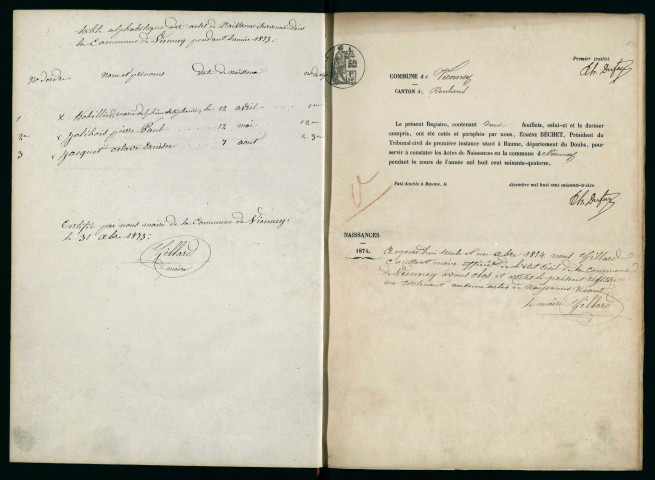 Table alphabétique des actes de Naissance survenus dans
la Commune de Vienney pendant l'année 1873.
No d'ordre Nom et prénoms date de naissance
1 12 avril 1er
2 Pierre Paul 12 mai 2e
3 Jacquet 7 aout 3e
Certifié par nous maire de la Commune de Vienney
le 31 xbre 1873.
Gillard
maire
Premier feuillet
Ch. Dufay
COMMUNE de Vienney
CANTON de Roulans
Le présent Registre, contenant deux feuillets, celui-ci et le dernier
compris, ont été cotés et paraphés par nous, Eugène BÉCHET, Président du
Tribunal civil de première instance séant à Baume, département du Doubs, pour
servir à constater les Actes de Naissances en la commune de Vienney
pendant le cours de l'année mil huit cent soixante-quatorze.
Fait double à Baume, le décembre mil huit cent soixante-treize.
Ch. Dufay
NAISSANCES
1874.
Aujourd'hui trente et un xbre 1874 nous Gillard
maire officier de l'état civil de la Commune
de Vienney avons clos et arrêté le présent registre
ne contenant aucuns actes de Naissances Néant
le maire Gillard